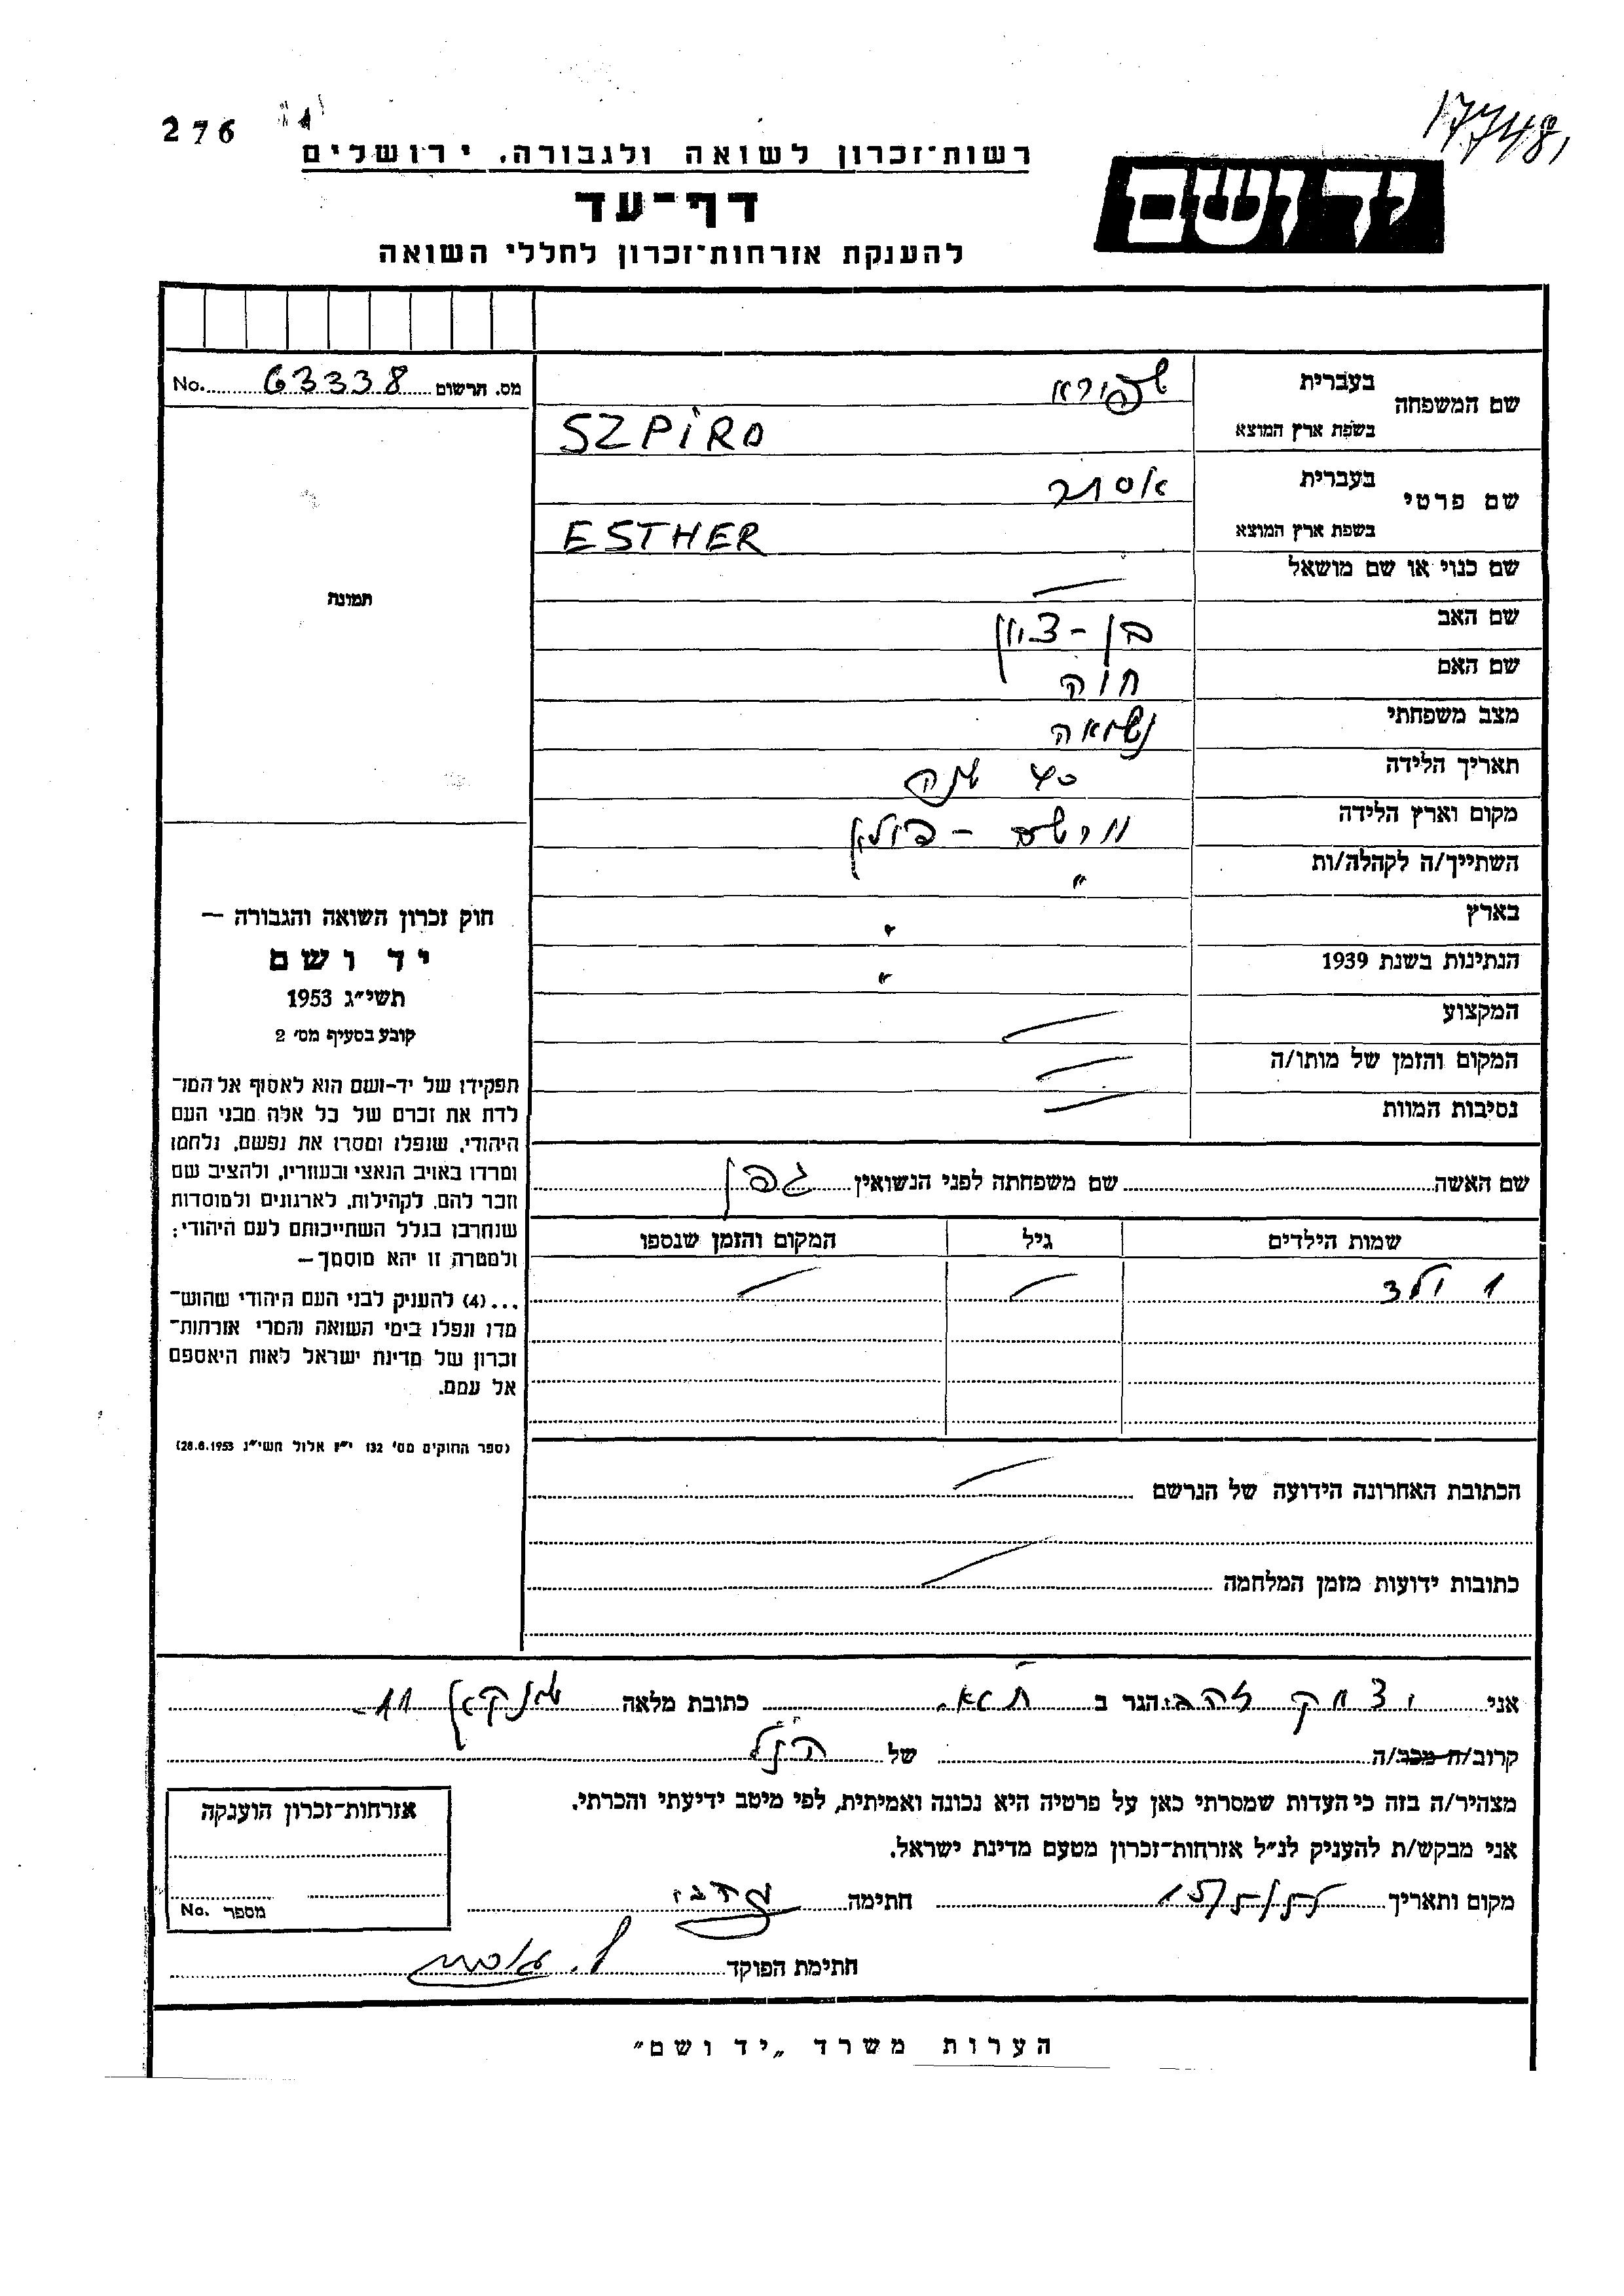 276
17748
רשות־זכרון לשואה ולגבורה, ירושלים
יד ושם
דף־עד
להענקת אזרחות־זכרון לחללי השואה
מס. הרשום No. 63338
תמונה
שם המשפחה
בעברית שפירא
בשפת ארץ המוצא SZPIRO
שם פרטי
בעברית אסתר
בשפת ארץ המוצא ESTHER
שם כנוי או שם מושאל —
שם האב בן-ציון
שם האם חוה
מצב משפחתי נשואה
תאריך הלידה 40 שנה
מקום וארץ הלידה ורשה - פולין
השתייך/ה לקהלה/ות "
בארץ "
הנתינות בשנת 1939 "
המקצוע —
המקום והזמן של מותו/ה —
נסיבות המוות —
שם האשה שם משפחתה לפני הנשואין גפן
שמות הילדים גיל המקום והזמן שנספו
1 ילד — —
הכתובת האחרונה הידועה של הנרשם —
כתובות ידועות מזמן המלחמה —
חוק זכרון השואה והגבורה —
יד ושם
תשי״ג 1953
קובע בסעיף מס׳ 2
תפקידו של יד-ושם הוא לאסוף אל המו־
לדת את זכרם של כל אלה מבני העם
היהודי, שנפלו ומסרו את נפשם, נלחמו
ומרדו באויב הנאצי ובעוזריו, ולהציב שם
וזכר להם, לקהילות, לארגונים ולמוסדות
שנחרבו בגלל השתייכותם לעם היהודי;
ולמטרה זו יהא מוסמך —
...(4) להעניק לבני העם היהודי שהוש־
מדו ונפלו בימי השואה והמרי אזרחות־
זכרון של מדינת ישראל לאות היאספם
אל עמם.
(ספר החוקים מס׳ 132 י״ז אלול תשי״ג 28.8.1953)
אני יצחק להבי הגר ב ת״א. כתובת מלאה 11
קרוב/ה מכר/ה של הנ״ל
מצהיר/ה בזה כי העדות שמסרתי כאן על פרטיה היא נכונה ואמיתית, לפי מיטב ידיעתי והכרתי.
אני מבקש/ת להעניק לנ״ל אזרחות־זכרון מטעם מדינת ישראל.
מקום ותאריך חתימה
חתימת הפוקד
אזרחות־זכרון הוענקה
מספר No.
הערות משרד „יד ושם״